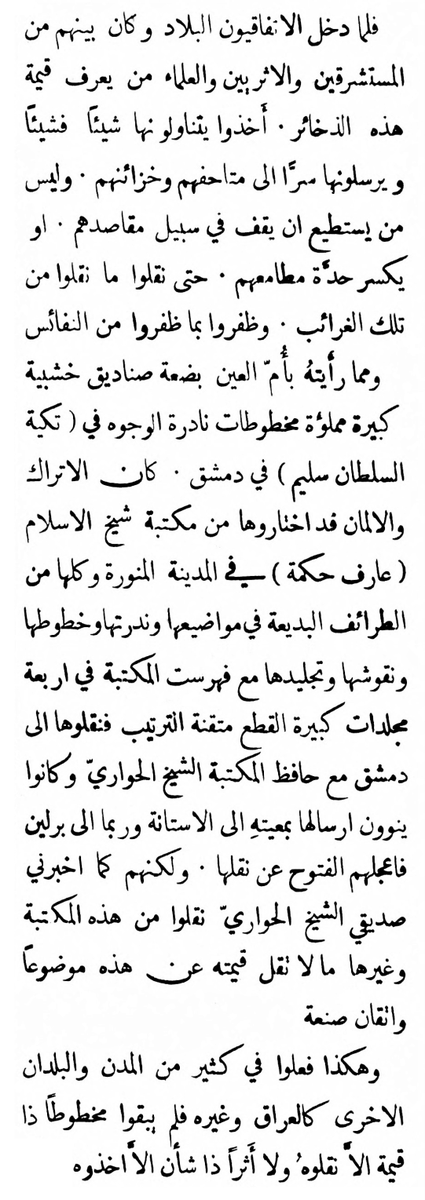 فلما دخل الاتفاقيون البلاد وكان بينهم من
المستشرقين والاثريين والعلماء من يعرف قيمة
هذه الذخائر . أخذوا يتناولونها شيئًا فشيئًا
ويرسلونها سرًّا الى متاحفهم وخزائنهم . وليس
من يستطيع ان يقف في سبيل مقاصدهم . او
يكسر حدَّة مطامعهم . حتى نقلوا ما نقلوا من
تلك الغرائب . وظفروا بما ظفروا من النفائس
ومما رأيتهُ بأُمّ العين بضعة صناديق خشبية
كبيرة مملوءة مخطوطات نادرة الوجوه في ( تكية
السلطان سليم ) في دمشق . كان الاتراك
والالمان قد اختاروها من مكتبة شيخ الاسلام
( عارف حكمة ) في المدينة المنورة وكلها من
الطرائف البديعة في مواضيعها وندرتها وخطوطها
ونقوشها وتجليدها مع فهرست المكتبة في اربعة
مجلدات كبيرة القطع متقنة الترتيب فنقلوها الى
دمشق مع حافظ المكتبة الشيخ الحواريّ وكانوا
ينوون ارسالها بمعيتهِ الى الاستانة وربما الى برلين
فاعجلهم الفتوح عن نقلها . ولكنهم كما اخبرني
صديقي الشيخ الحواريّ نقلوا من هذه المكتبة
وغيرها ما لا تقل قيمته عن هذه موضوعًا
واتقان صنعة
وهكذا فعلوا في كثير من المدن والبلدان
الاخرى كالعراق وغيره فلم يبقوا مخطوطًا ذا
قيمة الاَّ نقلوهُ ولا أثرًا ذا شأن الاَّ اخذوه